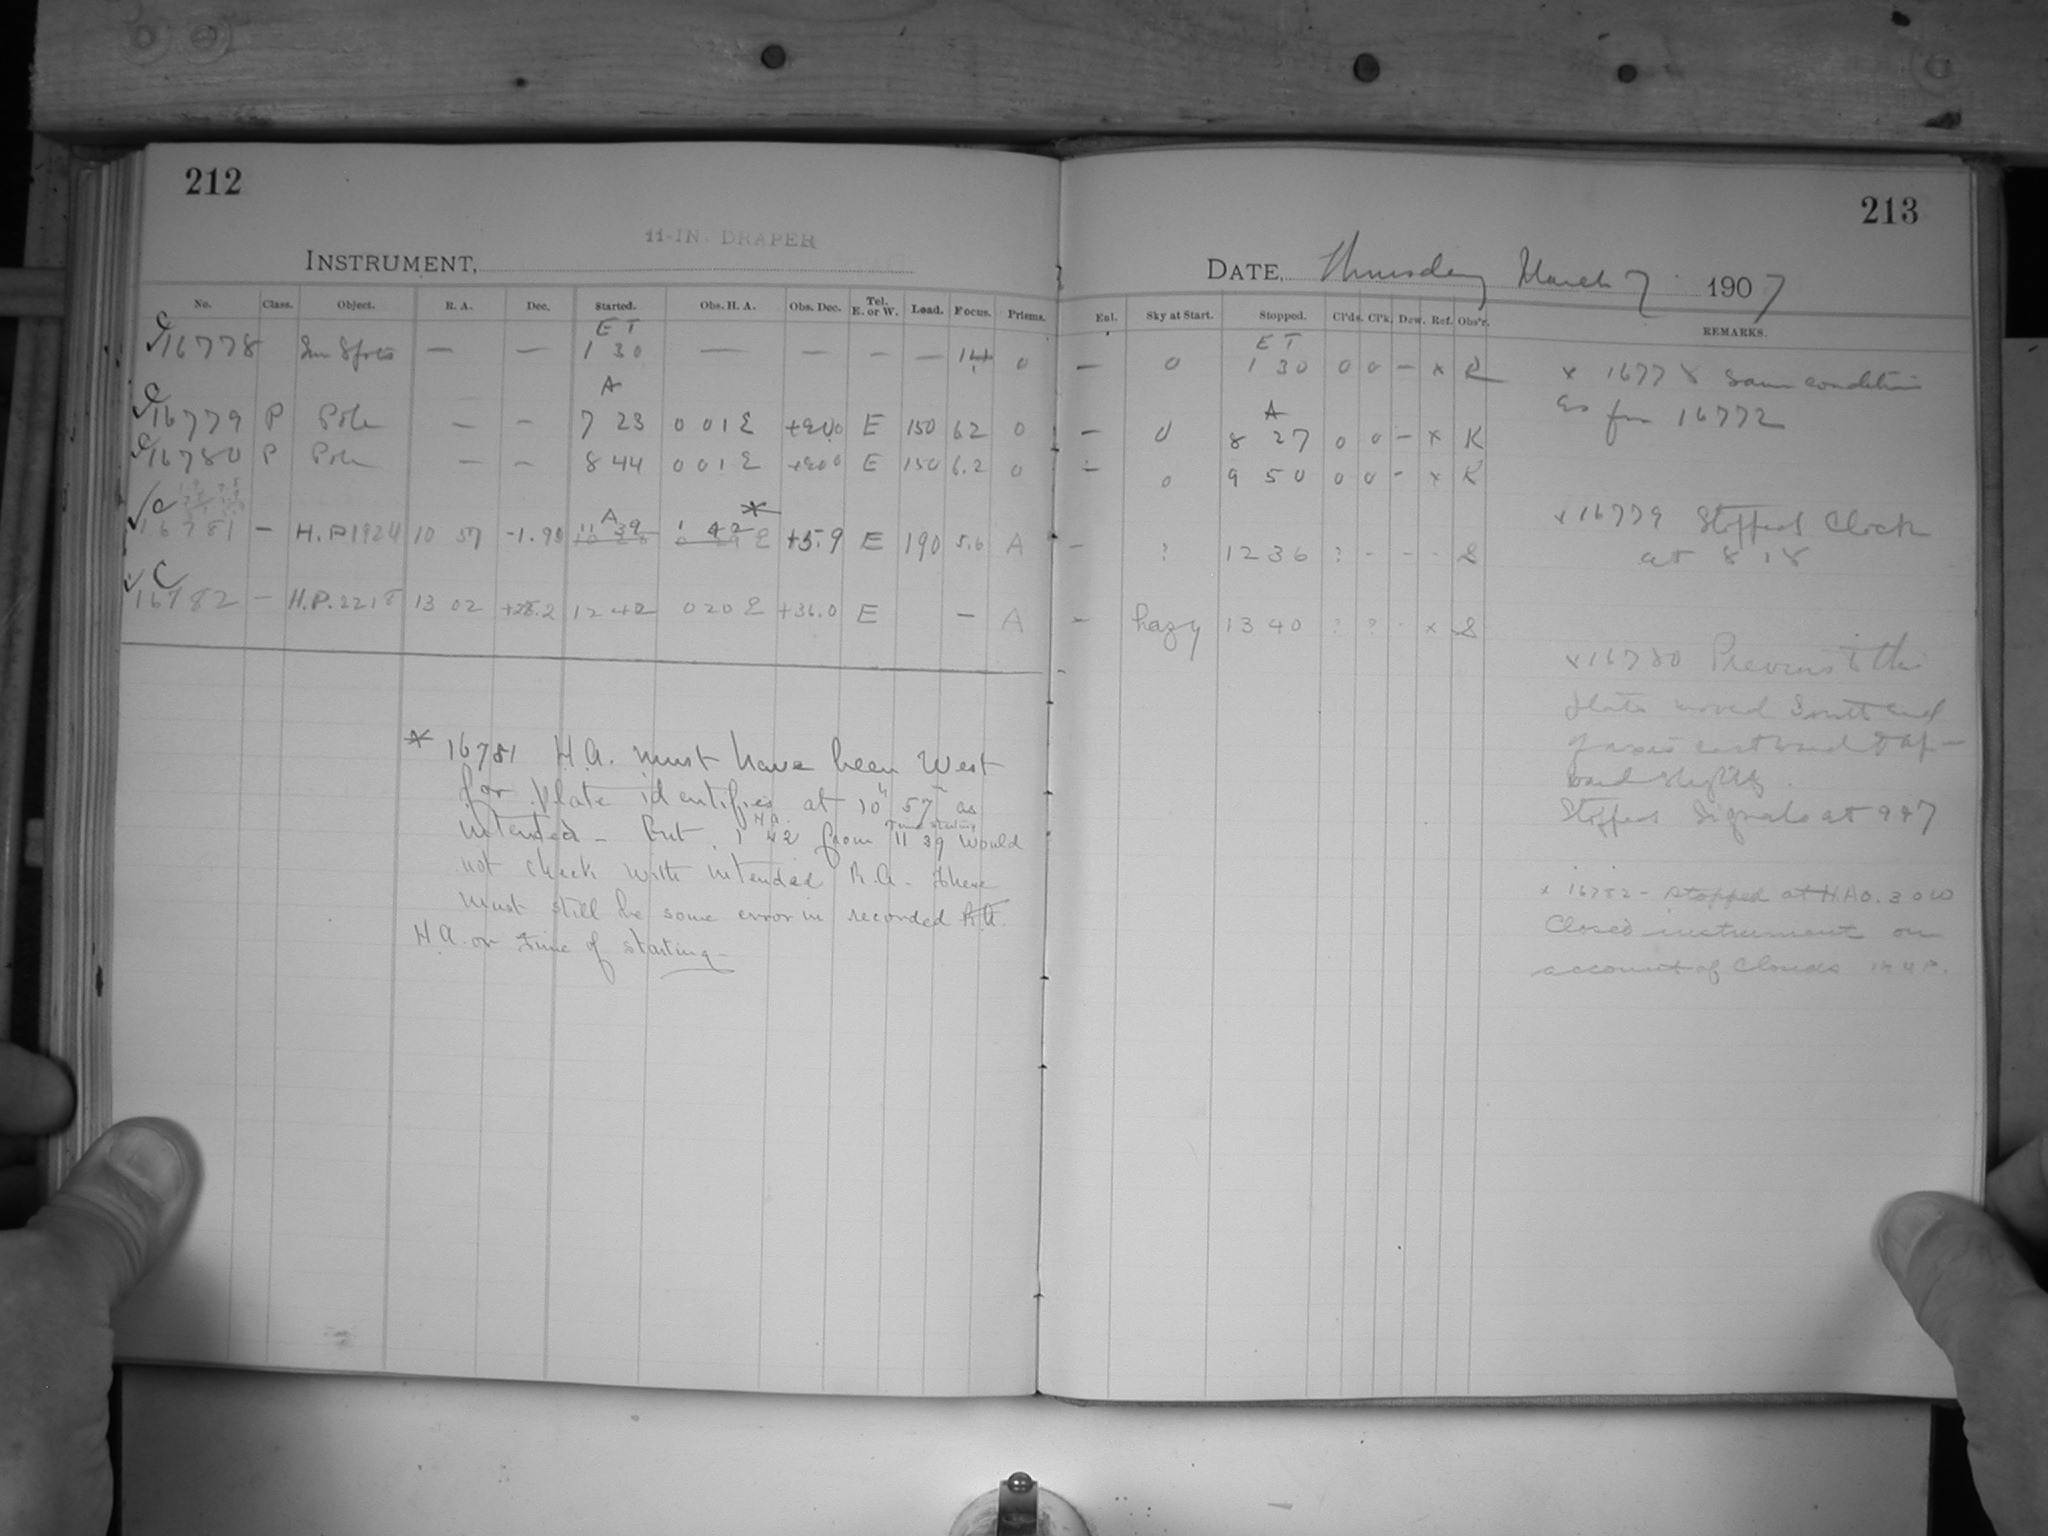 212
11-IN. DRAPER
INSTRUMENT,
No. Class. Object. R. A. Dec. Started. Obs. H. A. Obs. Dec. Tel. E. or W. Load. Focus. Prisms.
E T
C 16778 Sun Spots — — 1 30 — — — — 14 0
A
C 16779 P Pole — — 7 23 0 01 E +90.0 E 150 62 0
C 16780 P Pole — — 8 44 0 01 E +90.0 E 150 6.2 0
A *
C 16781 — H.P 1924 10 57 -1.90 11 39 1 42 E +5.9 E 190 5.6 A
C 16782 — H.P. 2218 13 02 +28.2 12 42 0 20 E +36.0 E — A
* 16781 H.A. must have been West
for plate identifies at 10h 57m as
H.A. Time starting
intended – But 1 42 from 11 39 would
not check with intended R.A. There
must still be some error in recorded R.A.
H.A. or time of starting –
213
DATE, Thursday March 7 1907
Enl. Sky at Start. Stopped. Cl'ds. Cl'k. Dew. Ref. Obs'r. REMARKS.
E T
— 0 1 30 0 0 – x R
A
— 0 8 27 0 0 – x K
— 0 9 50 0 0 – x K
— ? 12 36 ? - - - S
— hazy 13 40 ? ? - x S
x 16778 same condition
as for 16772
x 16779 Stopped Clock
at 8 18
x 16780 Previous to this
plate moved South end
of axis eastward & up-
ward slightly.
Stopped Signals at 9 47
x 16782 – Stopped at H.A. 0. 30 W
Closed instrument on
account of Clouds